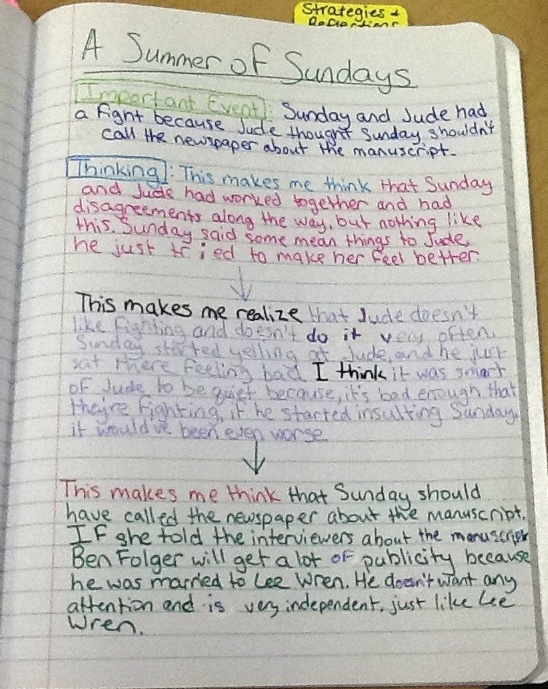 Strategies +
Reflections
A Summer of Sundays
Important Event: Sunday and Jude had
a fight because Jude thought Sunday shouldn't
call the newspaper about the manuscript.
Thinking: This makes me think that Sunday
and Jude had worked together and had
disagreements along the way, but nothing like
this. Sunday said some mean things to Jude,
he just tried to make her feel better.
This makes me realize that Jude doesn't
like fighting and doesn't do it very often.
Sunday started yelling at Jude, and he just
sat there feeling bad. I think it was smart
of Jude to be quiet because, it's bad enough that
they're fighting, if he started insulting Sunday,
it would've been even worse.
This makes me think that Sunday should
have called the newspaper about the manuscript.
If she told the interviewers about the manuscript
Ben Folger will get a lot of publicity because
he was married to Lee Wren. He doesn't want any
attention and is very independent, just like Lee
Wren.